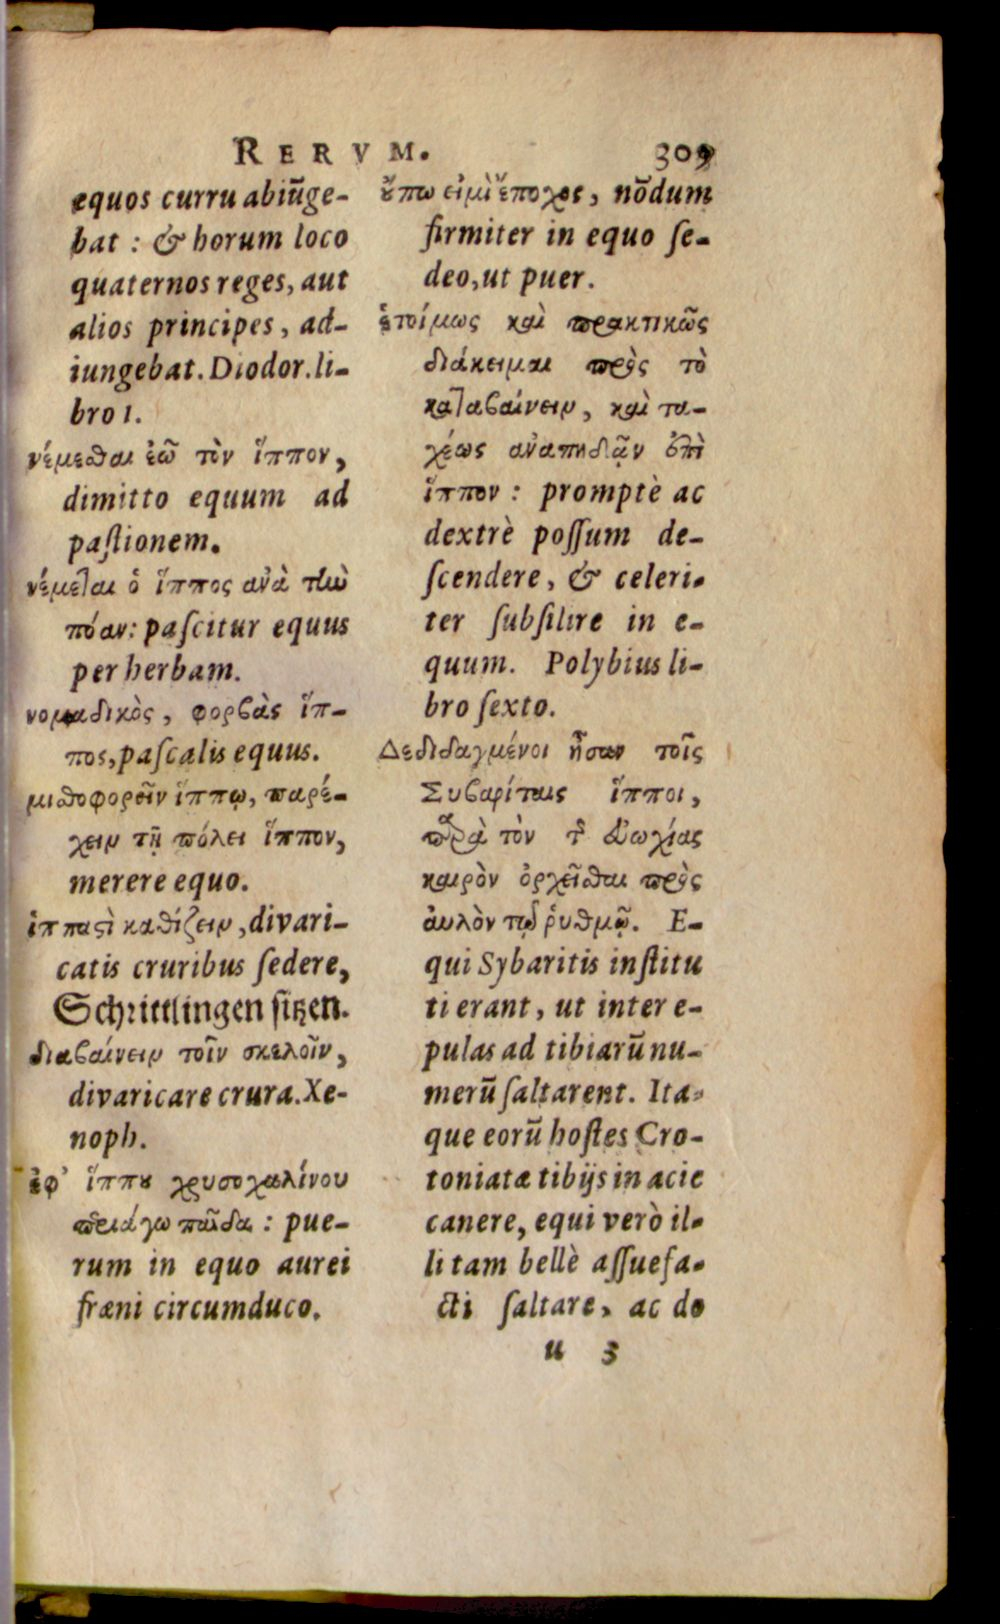 RERVM. 309
equos curru abiūge-
bat : & horum loco
quaternos reges, aut
alios principes, ad-
iungebat. Diodor. li-
bro 1.
νέμεσθαι ἐῶ τὸν ἵππον,
dimitto equum ad
paſtionem.
νέμεται ὁ ἵππος ἀνὰ τὴν
πόαν: paſcitur equus
per herbam.
νομαδικὸς, φορβὰς ἵπ-
πος, paſcalis equus.
μισθοφορεῖν ἵππῳ, παρέ-
χειν τῇ πόλει ἵππον,
merere equo.
ἱππαστὶ καθίζειν, divari-
catis cruribus ſedere,
Schrittlingen ſitzen.
διαβαίνειν τοῖν σκελοῖν,
divaricare crura. Xe-
noph.
ἐφ' ἵππου χρυσοχαλίνου
περιάγω παῖδα : pue-
rum in equo aurei
fræni circumduco.
οὔπω εἰμὶ ἔποχος, nōdum
firmiter in equo ſe-
deo, ut puer.
ἑτοίμως καὶ πρακτικῶς
διάκειμαι πρὸς τὸ
καταβαίνειν, καὶ τα-
χέως ἀναπηδᾷν ἐπὶ
ἵππον : promptè ac
dextrè poſſum de-
ſcendere, & celeri-
ter ſubſilire in e-
quum. Polybius li-
bro ſexto.
Δεδιδαγμένοι ἦσαν τοῖς
Συβαρίταις ἵπποι,
παρὰ τὸν τῆς εὐωχίας
καιρὸν ὀρχεῖσθαι πρὸς
ἀυλὸν τῷ ῥυθμῷ. E-
qui Sybaritis inſtitu
ti erant, ut inter e-
pulas ad tibiarū nu-
merū ſaltarent. Ita-
que eorū hoſtes Cro-
toniatæ tibijs in acie
canere, equi verò il-
li tam bellè aſſuefa-
cti ſaltare, ac de
u 3